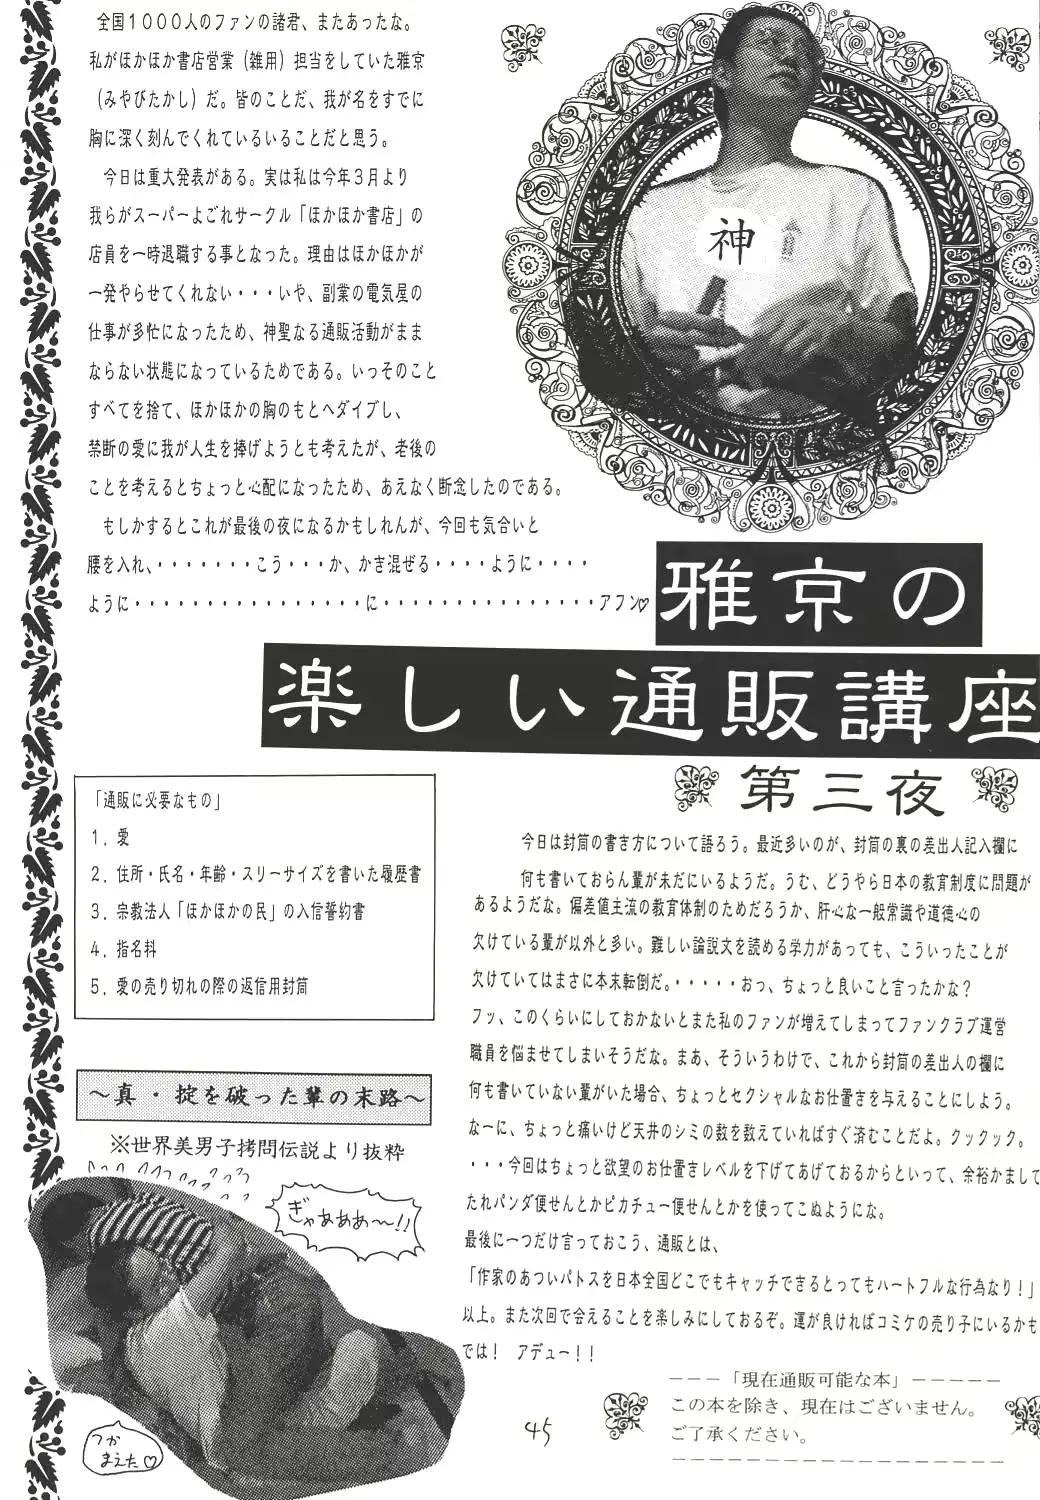 全国1000人のファンの諸君、またあったな。
私がほかほか書店営業(雑用)担当をしていた雅京
(みやびたかし)だ。皆のことだ、我が名をすでに
胸に深く刻んでくれているいることだと思う。
今日は重大発表がある。実は私は今年3月より
我らがスーパーよごれサークル「ほかほか書店」の
店員を一時退職する事となった。理由はほかほかが
一発やらせてくれない・・・いや、副業の電気屋の
仕事が多忙になったため、神聖なる通販活動がまま
ならない状態になっているためである。いっそのこと
すべてを捨て、ほかほかの胸のもとへダイブし、
禁断の愛に我が人生を捧げようとも考えたが、老後の
ことを考えるとちょっと心配になったため、あえなく断念したのである。
もしかするとこれが最後の夜になるかもしれんが、今回も気合いと
腰を入れ、・・・・・・・こう・・・か、かき混ぜる・・・・ように・・・・
ように・・・・・・・・・・・・・・・・に・・・・・・・・・・・・・・・アフン♡
神
雅京の
楽しい通販講座
第三夜
「通販に必要なもの」
1．愛
2．住所・氏名・年齢・スリーサイズを書いた履歴書
3．宗教法人「ほかほかの民」の入信誓約書
4．指名料
5．愛の売り切れの際の返信用封筒
～真・掟を破った輩の末路～
※世界美男子拷問伝説より抜粋
ぎゃあああ～!!
つか
まえた♡
今日は封筒の書き方について語ろう。最近多いのが、封筒の裏の差出人記入欄に
何も書いておらん輩が未だにいるようだ。うむ、どうやら日本の教育制度に問題が
あるようだな。偏差値主流の教育体制のためだろうか、肝心な一般常識や道徳心の
欠けている輩が以外と多い。難しい論説文を読める学力があっても、こういったことが
欠けていてはまさに本末転倒だ。・・・・・おっ、ちょっと良いこと言ったかな?
フッ、このくらいにしておかないとまた私のファンが増えてしまってファンクラブ運営
職員を悩ませてしまいそうだな。まあ、そういうわけで、これから封筒の差出人の欄に
何も書いていない輩がいた場合、ちょっとセクシャルなお仕置きを与えることにしよう。
なーに、ちょっと痛いけど天井のシミの数を数えていればすぐ済むことだよ。クックック。
・・・今回はちょっと欲望のお仕置きレベルを下げてあげておるからといって、余裕かまして
たれパンダ便せんとかピカチュー便せんとかを使ってこぬようにな。
最後に一つだけ言っておこう、通販とは、
「作家のあついパトスを日本全国どこでもキャッチできるとってもハートフルな行為なり!」
以上。また次回で会えることを楽しみにしておるぞ。運が良ければコミケの売り子にいるかも
では! アデュー!!
－－－「現在通販可能な本」－－－－－
この本を除き、現在はございません。
ご了承ください。
－－－－－－－－－－－－－－－－－－
45